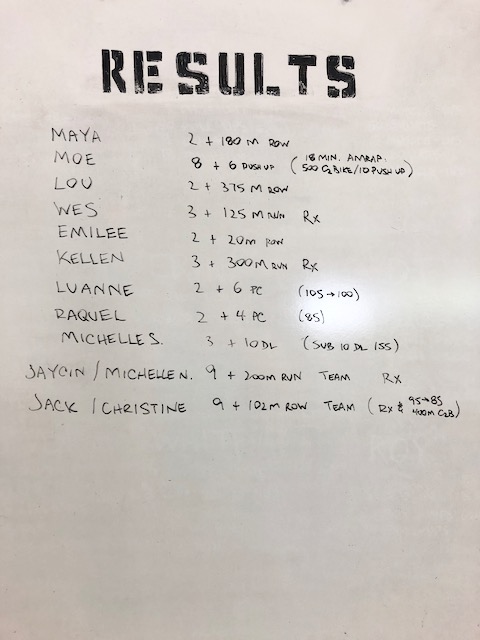 RESULTS
MAYA 2 + 180 M ROW
MOE 8 + 6 PUSH UP (18 MIN. AMRAP: 500 C2BIKE/10 PUSH UP)
LOU 2 + 375 M ROW
WES 3 + 125 M RUN Rx
EMILEE 2 + 20M ROW
KELLEN 3 + 300M RUN Rx
LUANNE 2 + 6 PC (105→100)
RAQUEL 2 + 4 PC (85)
MICHELLE S. 3 + 10 DL (SUB 10 DL 155)
JAYCIN / MICHELLE N. 9 + 200M RUN TEAM Rx
JACK / CHRISTINE 9 + 102M ROW TEAM (Rx & 95→85 400M C2B)